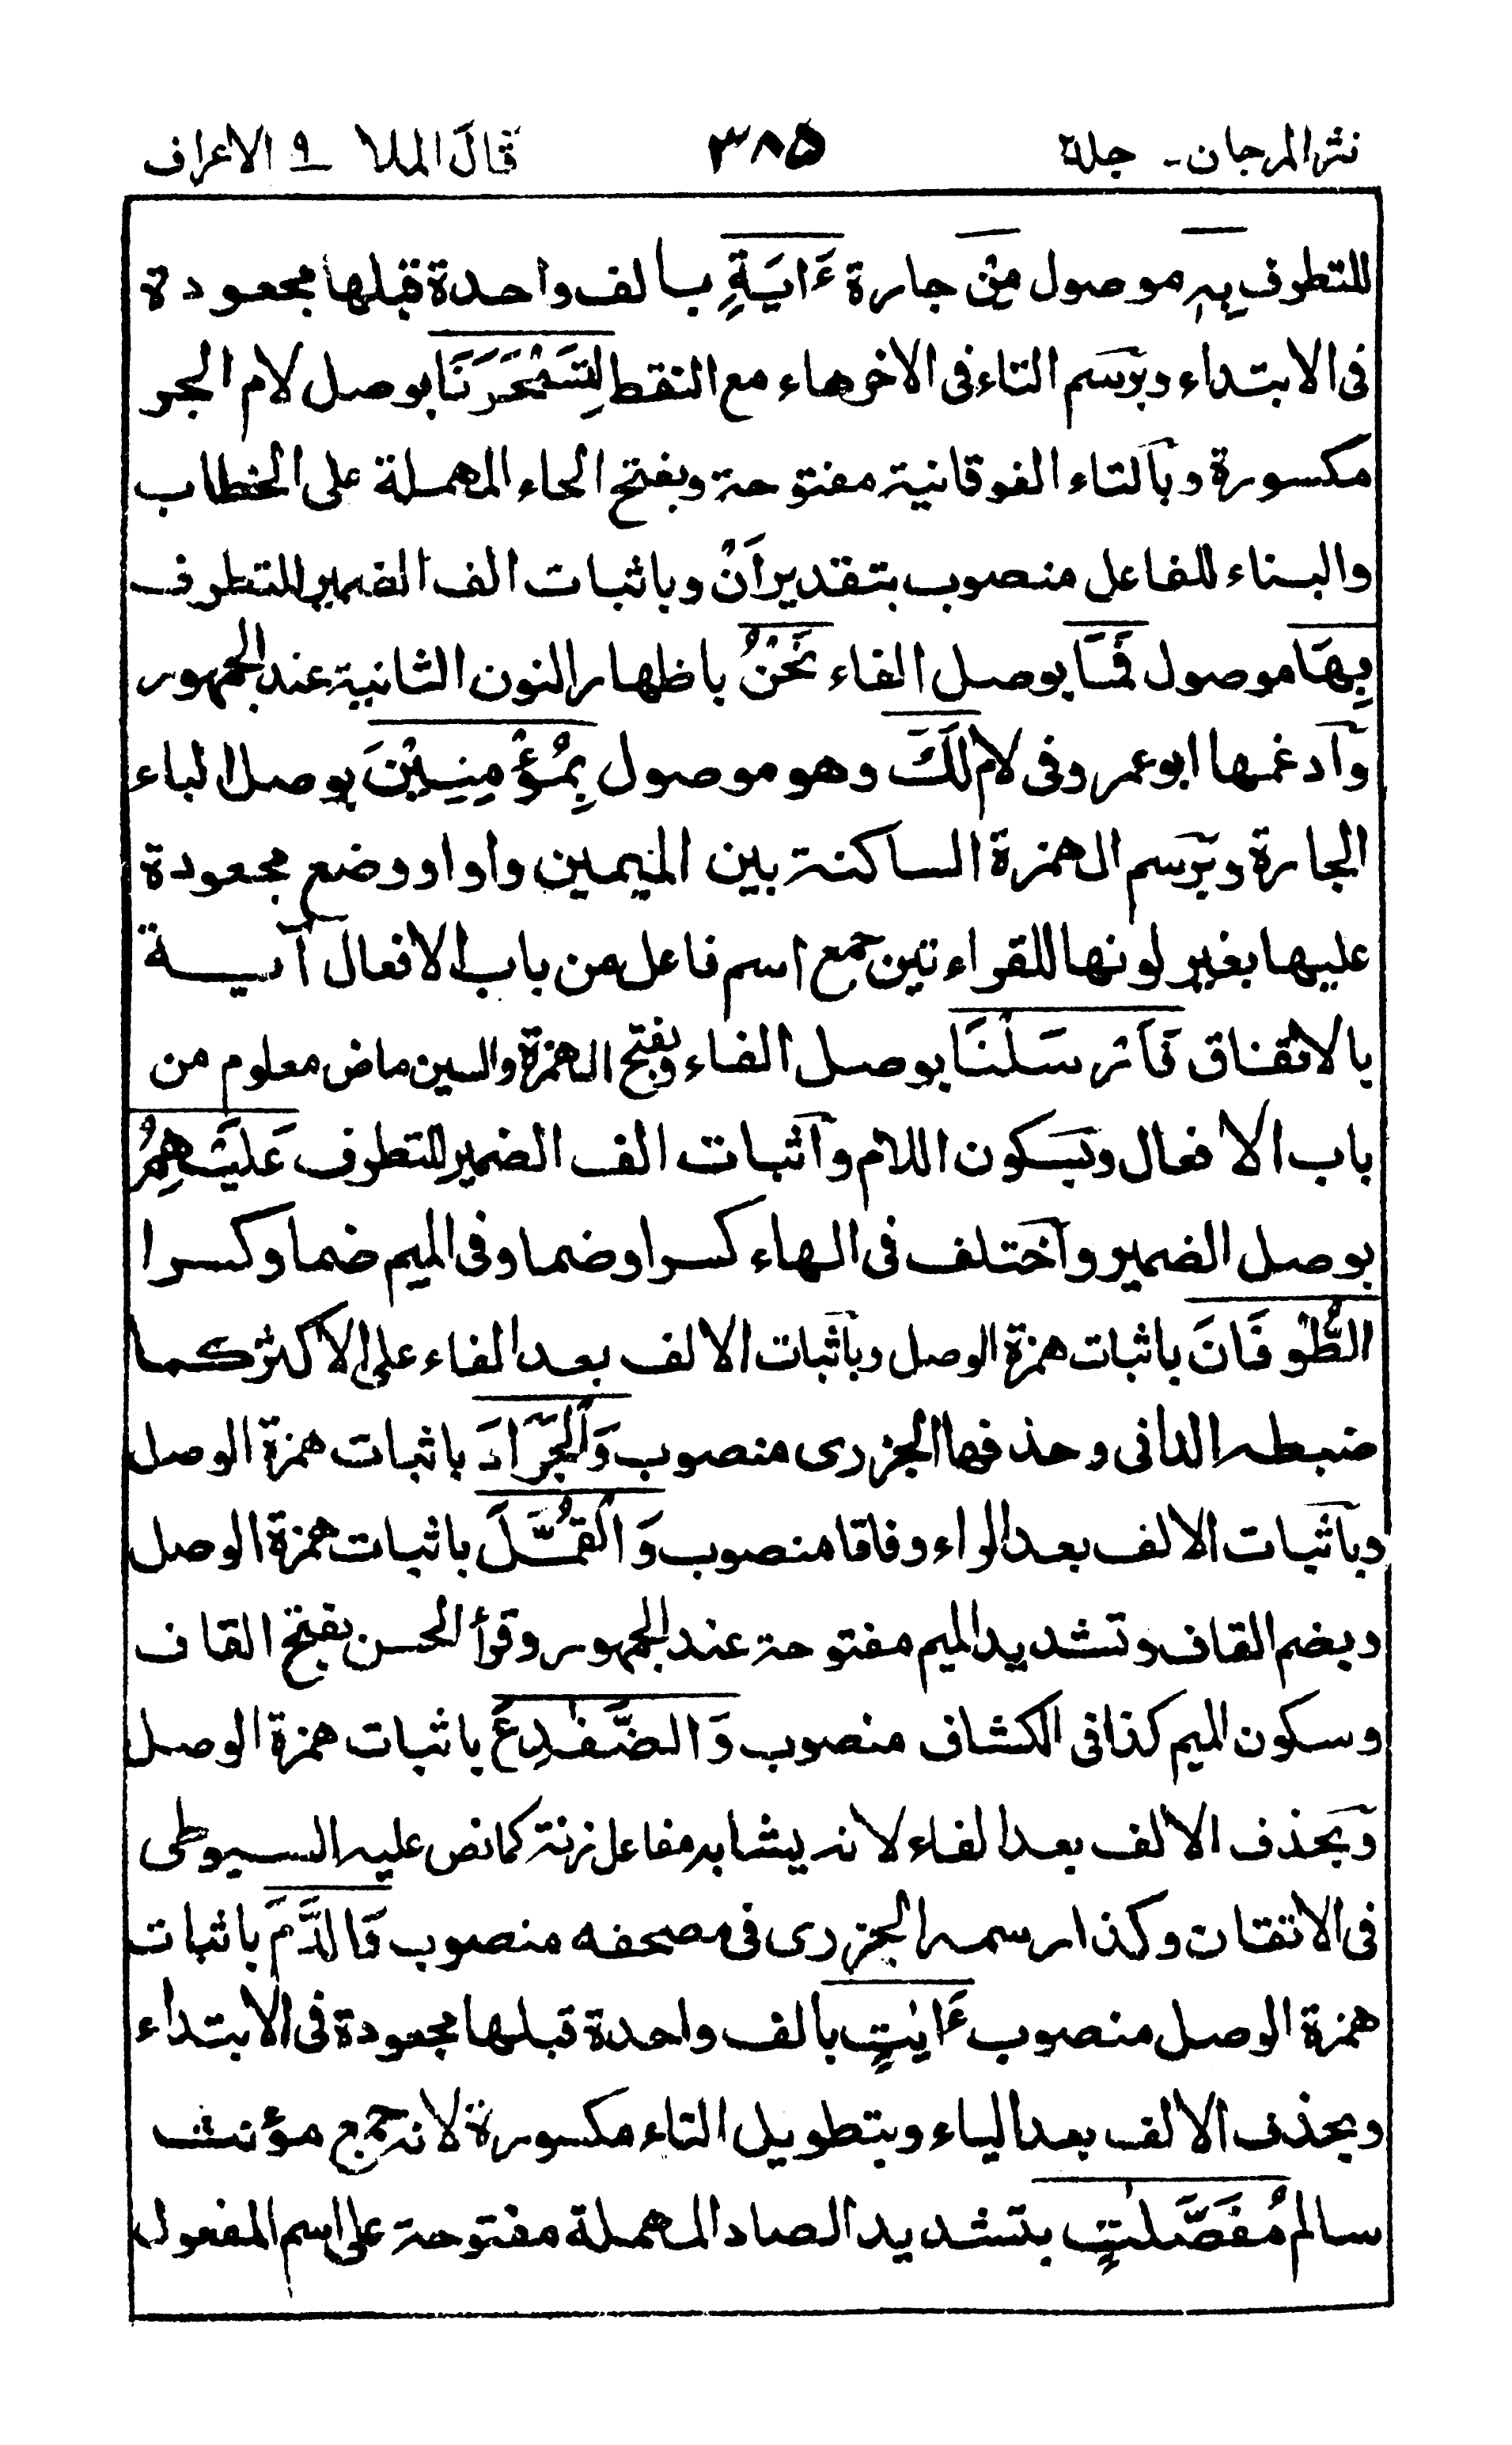 نثر المرجان - جلد ٣٨٥ قَالَ الملا ٩ الاعراف
للتطرف بِهٖ موصول مِنْ جارة ءَايَةٍ بالف واحدة قبلها مجعودة
فى الابتداء وبرسم التاء فى الاخر هاء مع النقط لِتَسْحَرَنَا بوصل لام الجر
مكسورة وبالتاء الفوقانية مفتوحة وبفتح الحاء المهملة على الخطاب
والبناء للفاعل منصوب بتقدير اَنْ وباثبات الف الضمير للتطرف
بِهَا موصول فَمَا بوصل الفاء نَحْنُ باظهار النون الثانية عند الجمهور
وادغمها ابو عمرو فى لام لَكَ وهو موصول بِمُؤْمِنِيْنَ بوصل الباء
الجارة وبرسم الهمزة الساكنة بين الميمين واوا ووضع مجعودة
عليها بغير لونها للقراءتين جمع اسم فاعل من باب الافعال آية
بالاتفاق فَاَرْسَلْنَا بوصل الفاء وبفتح الهمزة والسين ماض معلوم من
باب الافعال وبسكون اللام واثبات الف الضمير للتطرف عَلَيْهِمُ
بوصل الضمير واختلف فى الهاء كسرا وضما وفى الميم ضما وكسرا
الطُّوْفَانَ باثبات همزة الوصل وباثبات الالف بعد الفاء على الاكثر كما
ضبطه الدانى وحذفها الجزرى منصوب وَالْجَرَادَ باثبات همزة الوصل
وباثبات الالف بعد الراء وفاقا منصوب وَالْقُمَّلَ باثبات همزة الوصل
وبضم القاف وتشديد الميم مفتوحة عند الجمهور وقرأ الحسن بفتح القاف
وسكون الميم كذا فى الكشاف منصوب وَالضَّفٰدِعَ باثبات همزة الوصل
وبحذف الالف بعد الفاء لانه يشابه مفاعل زنة كما نص عليه السيوطى
فى الاتقان وكذا رسمه الجزرى فى مصحفه منصوب وَالدَّمَ باثبات
همزة الوصل منصوب ءَايٰتٍ بالف واحدة قبلها مجعودة فى الابتداء
وبحذف الالف بعد الياء وبتطويل التاء مكسورة لانه جمع مؤنث
سالم مُفَصَّلٰتٍ بتشديد الصاد المهملة مفتوحة على اسم المفعول